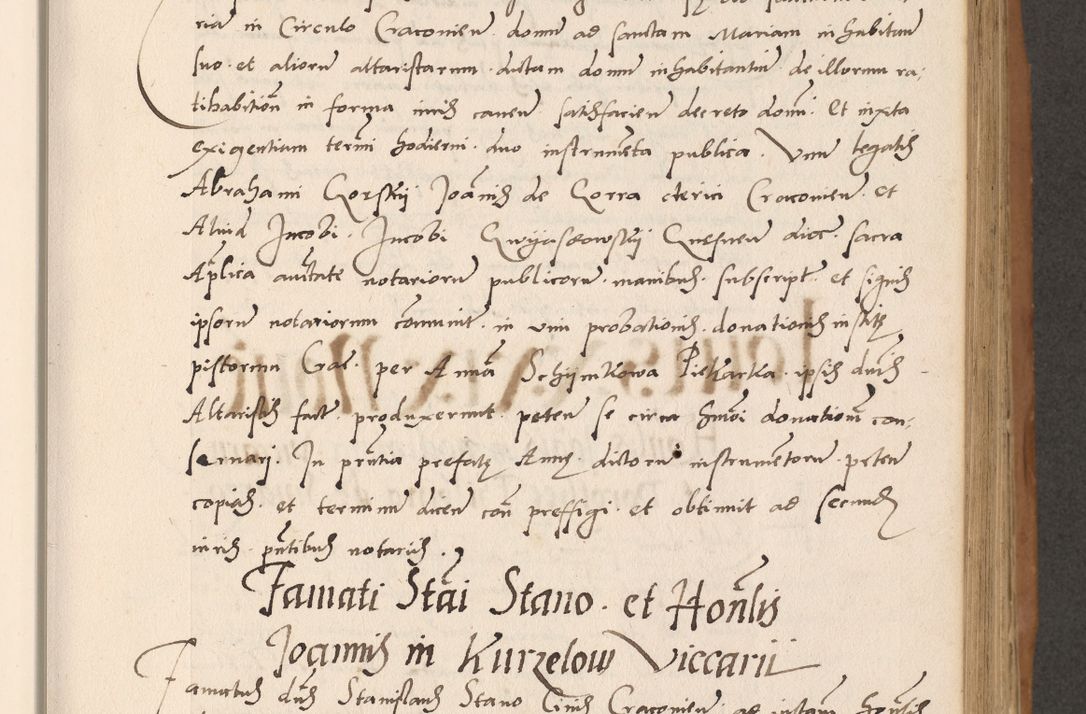 ria in Circulo Cracovien domu ad sanctam Mariam inhabitan
suo et aliorum altaristarum dictam domum inhabitantium de illorum ra-
tihabitione in forma iuris caven satisfacien decreto domi Et iuxta
exigentiam termi hodierni duo instrumenta publica Unum legalis
Abrahami Gorskij Joannis de Gorra clerici Cracovien et
Aliud Jacobi Jacobi Gwijaskowskij Gnesnen dioc sacra
Aplica auctate notariorum publicorum manibus subscript et signis
ipsorum notariorum commnit in vim probationis donationis in
pistorum Crac per Annam Schijmkowa Piekarka ipsis dnis
Altaristis fact produxerunt peten se circa hmoi donationem con-
servari In pntia prefate Anne dictorum instrumentorum peten
copias et terminum dicen con preffigi et obtinuit ad secundum
iuris pntibus notariis
Famati Stai Stano et Honlis
Joannis in Kurzelow Viccarii
Famatus dns Stanislaus Stano Civis Cracovien ad instam honlis